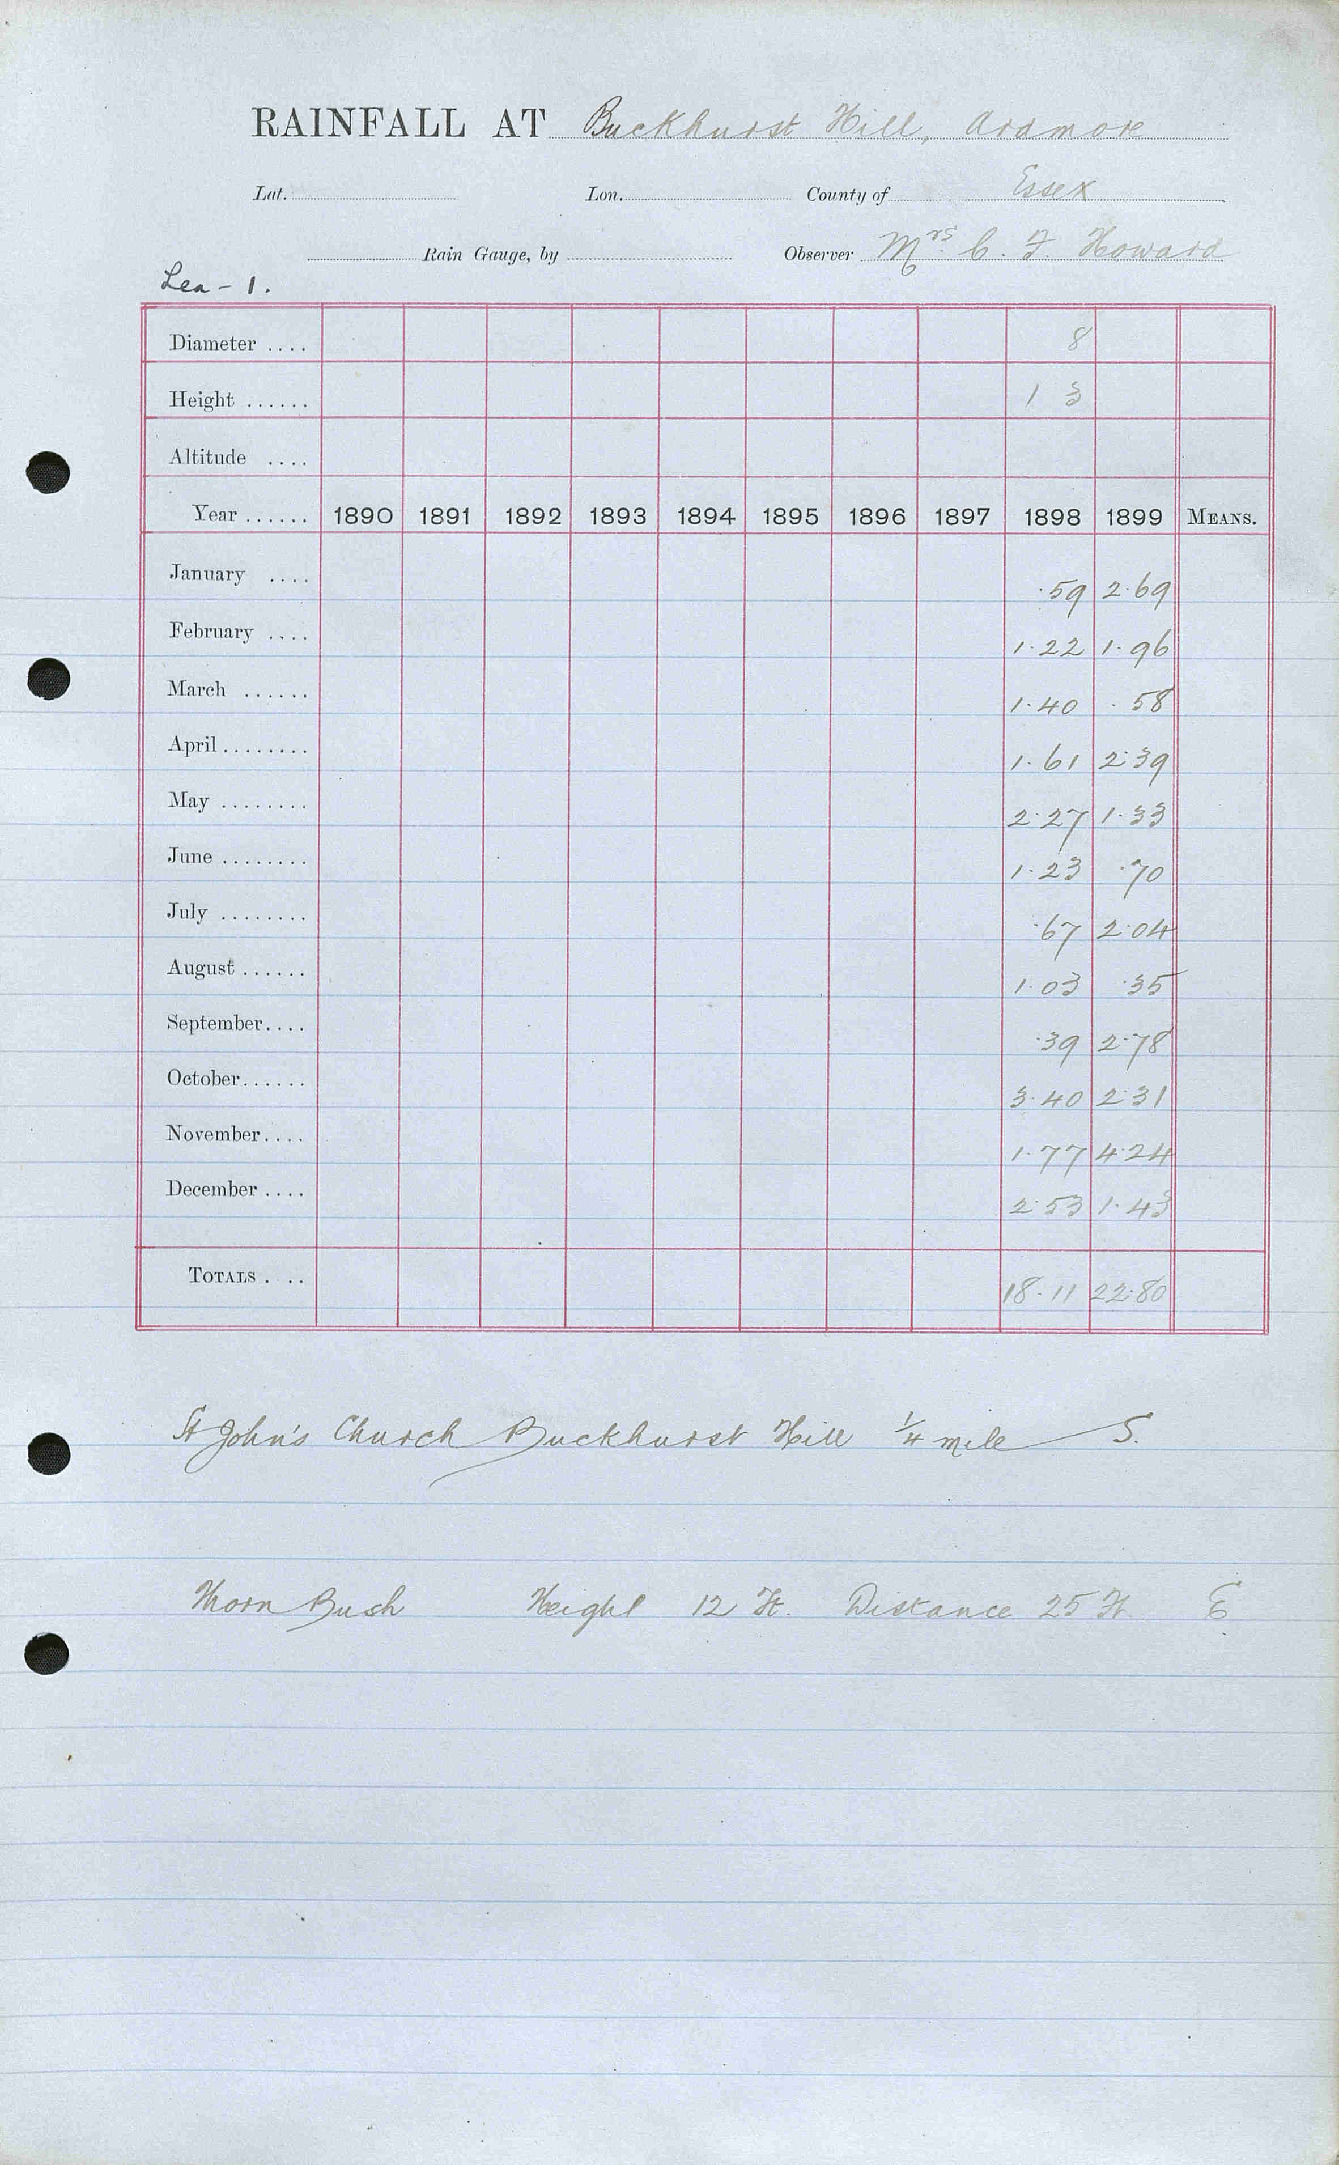 RAINFALL AT Buckhurst Hill, Ardmore
Lat. Lon. County of Essex
Rain Gauge, by Observer Mrs. C. F. Howard
Lea - 1.
Diameter .... 8
Height ...... 1 3
Altitude ....
Year ...... 1890 1891 1892 1893 1894 1895 1896 1897 1898 1899 MEANS.
January .... .59 2.69
February .... 1.22 1.96
March ...... 1.40 .58
April ........ 1.61 2.39
May ........ 2.27 1.33
June ........ 1.23 .70
July ........ .67 2.04
August ...... 1.03 .35
September.... .39 2.78
October...... 3.40 2.31
November.... 1.77 4.24
December .... 2.53 1.43
TOTALS . .. 18.11 22.80
St John's Church Buckhurst Hill 1/4 mile S.
Thorn Bush Height 12 Ft. Distance 25 Ft E